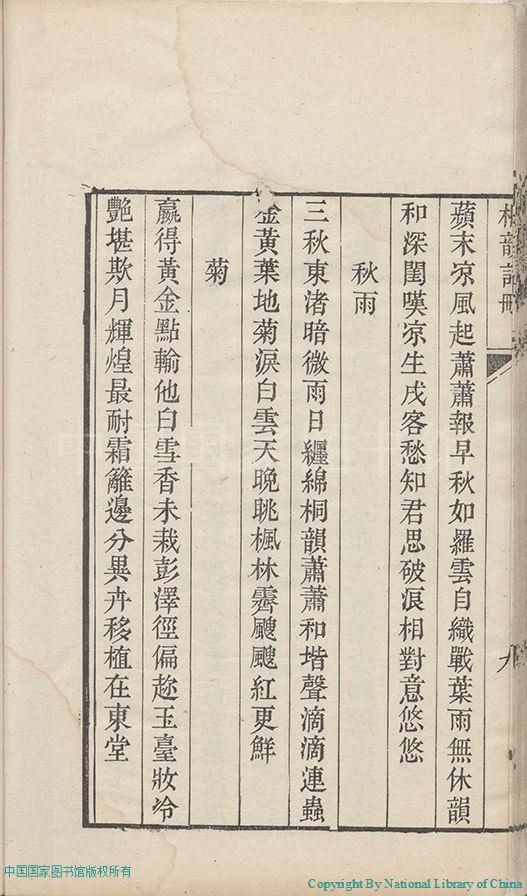 蘋末凉風起蕭蕭報早秋如羅雲自織戰葉雨無休韻
和深閨嘆凉生戍客愁知君思破淚相對意悠悠
秋雨
三秋東渚暗微雨日纏綿桐韻蕭蕭和堦聲滴滴連蟲
金黃葉地菊淚白雲天晚眺楓林霽颼颼紅更鮮
菊
贏得黃金點輸他白雪香未栽彭澤徑偏趂玉臺妝冷
艷堪欺月輝煌最耐霜籬邊分異卉移植在東堂
中国国家图书馆版权所有
Copyright By National Library of China